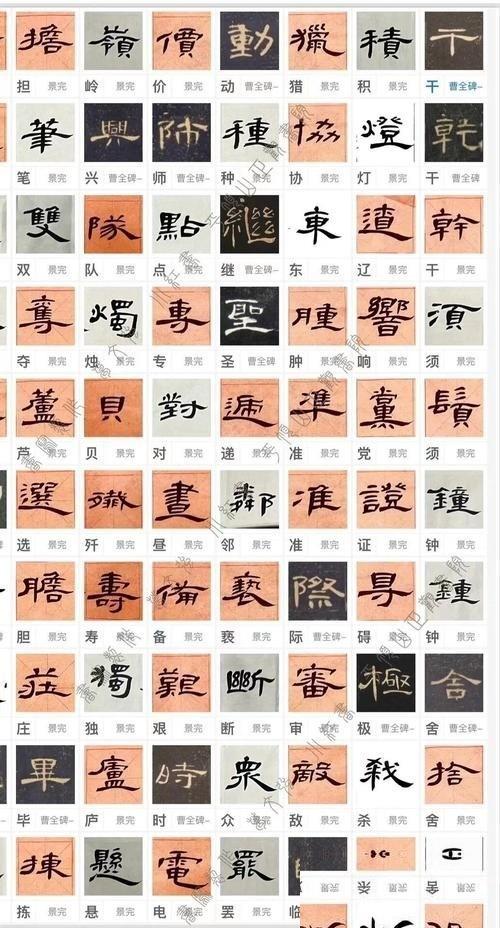 擔 嶺 價 動 獵 積 干
担 景完 岭 景完 价 景完 动 曹全碑– 猎 景完 积 景完 干 曹全碑–
筆 興 師 種 協 燈 乾
笔 景完 兴 曹全碑– 师 曹全碑– 种 景完 协 景完 灯 景完 干 曹全碑
雙 隊 點 繼 東 遼 幹
双 景完 队 景完 点 景完 继 曹全碑– 东 景完 辽 景完 干 景完
奪 燭 專 聖 腫 響 須
夺 景完 烛 景完 专 景完 圣 曹全碑 肿 景完 响 景完 须 景完
蘆 貝 對 遞 準 黨 鬚
芦 景完 贝 景完 对 景完 递 景完 准 景完 党 景完 须 景完
選 殲 晝 鄰 准 證 鐘
选 景完 歼 景完 昼 景完 邻 景完 准 景完 证 景完 钟 景完
膽 壽 備 褻 際 鍾
胆 景完 寿 景完 备 景完 亵 景完 际 曹全碑– 碍 景完 钟 景完
莊 獨 艱 斷 審 極 舍
庄 景完 独 景完 艰 景完 断 景完 审 景完 极 曹全碑– 舍 曹全碑–
畢 廬 時 眾 敵 殺 捨
毕 曹全碑– 庐 景完 时 曹全碑– 众 景完 敌 景完 杀 景完 舍 景完
揀 懸 電 罷
拣 景完 悬 景完 电 景完 罢 景完 临